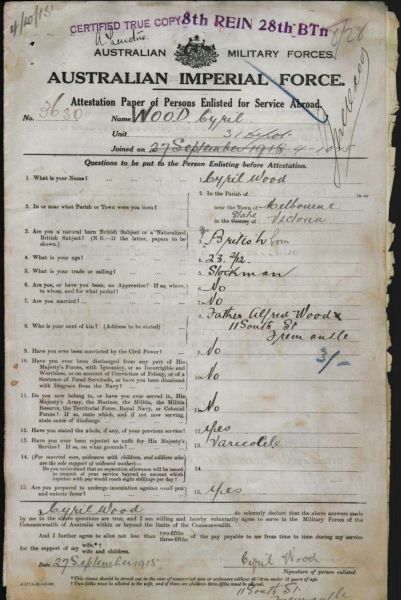 4/10/15
CERTIFIED TRUE COPY 8th REIN 28th BTn
AUSTRALIAN MILITARY FORCES.
AUSTRALIAN IMPERIAL FORCE.
Attestation Paper of Persons Enlisted for Service Abroad.
No. 3680 Name WOOD Cyril
Unit
Joined on 27 September 1915
Questions to be put to the Person Enlisting before Attestation.
1. What is your Name? 1. Cyril Wood
2. In or near what Parish or Town were you born? 2. In the Parish of in or
near the Town of Melbourne
in the County of State Victoria
3. Are you a natural born British Subject or a Naturalized
British Subject? (N.B.—If the latter, papers to be
shown.) 3. British born
4. What is your age? 4. 23 2/12
5. What is your trade or calling? 5. Stockman
6. Are you, or have you been, an Apprentice? If so, where,
to whom, and for what period? 6. No
7. Are you married? 7. No
8. Who is your next of kin? (Address to be stated) 8. Father Alfred Wood
11 South St
Fremantle
3/-
9. Have you ever been married by the Civil Power? 9. No
10. Have you ever been discharged from any part of His
Majesty's Forces, with Ignominy, or as Incorrigible and
Worthless, or on account of Conviction of Felony, or of a
Sentence of Penal Servitude, or have you been dismissed
with Disgrace from the Navy? 10. No
11. Do you now belong to, or have you ever served in, His
Majesty's Army, the Marines, the Militia, the Militia
Reserve, the Territorial Force, Royal Navy, or Colonial
Forces? If so, state which, and if not now serving,
state cause of discharge 11. No
12. Have you stated the whole, if any, of your previous service? 12. Yes
13. Have you ever been rejected as unfit for His Majesty's
Service? If so, on what grounds? 13. Varicocele
14. (For married men, widowers with children, and soldiers who
are the sole support of widowed mother)—
Do you understand that no separation allowance will be
issued in respect of your service beyond an amount which
together with pay would reach eight shillings per day? 14.
15. Are you prepared to undergo inoculation against small pox
and enteric fever? 15. Yes
I, Cyril Wood do solemnly declare that the above answers made
by me to the above questions are true, and I am willing and hereby voluntarily agree to serve in the Military Forces of the
Commonwealth of Australia within or beyond the limits of the Commonwealth.
And I further agree to allot not less than two-fifths three-fifths of the pay payable to me from time to time during my service
for the support of my wife.* wife and children.
Date 27 September 1915 Cyril Wood
Signature of person enlisted.
11 South St.
Fremantle